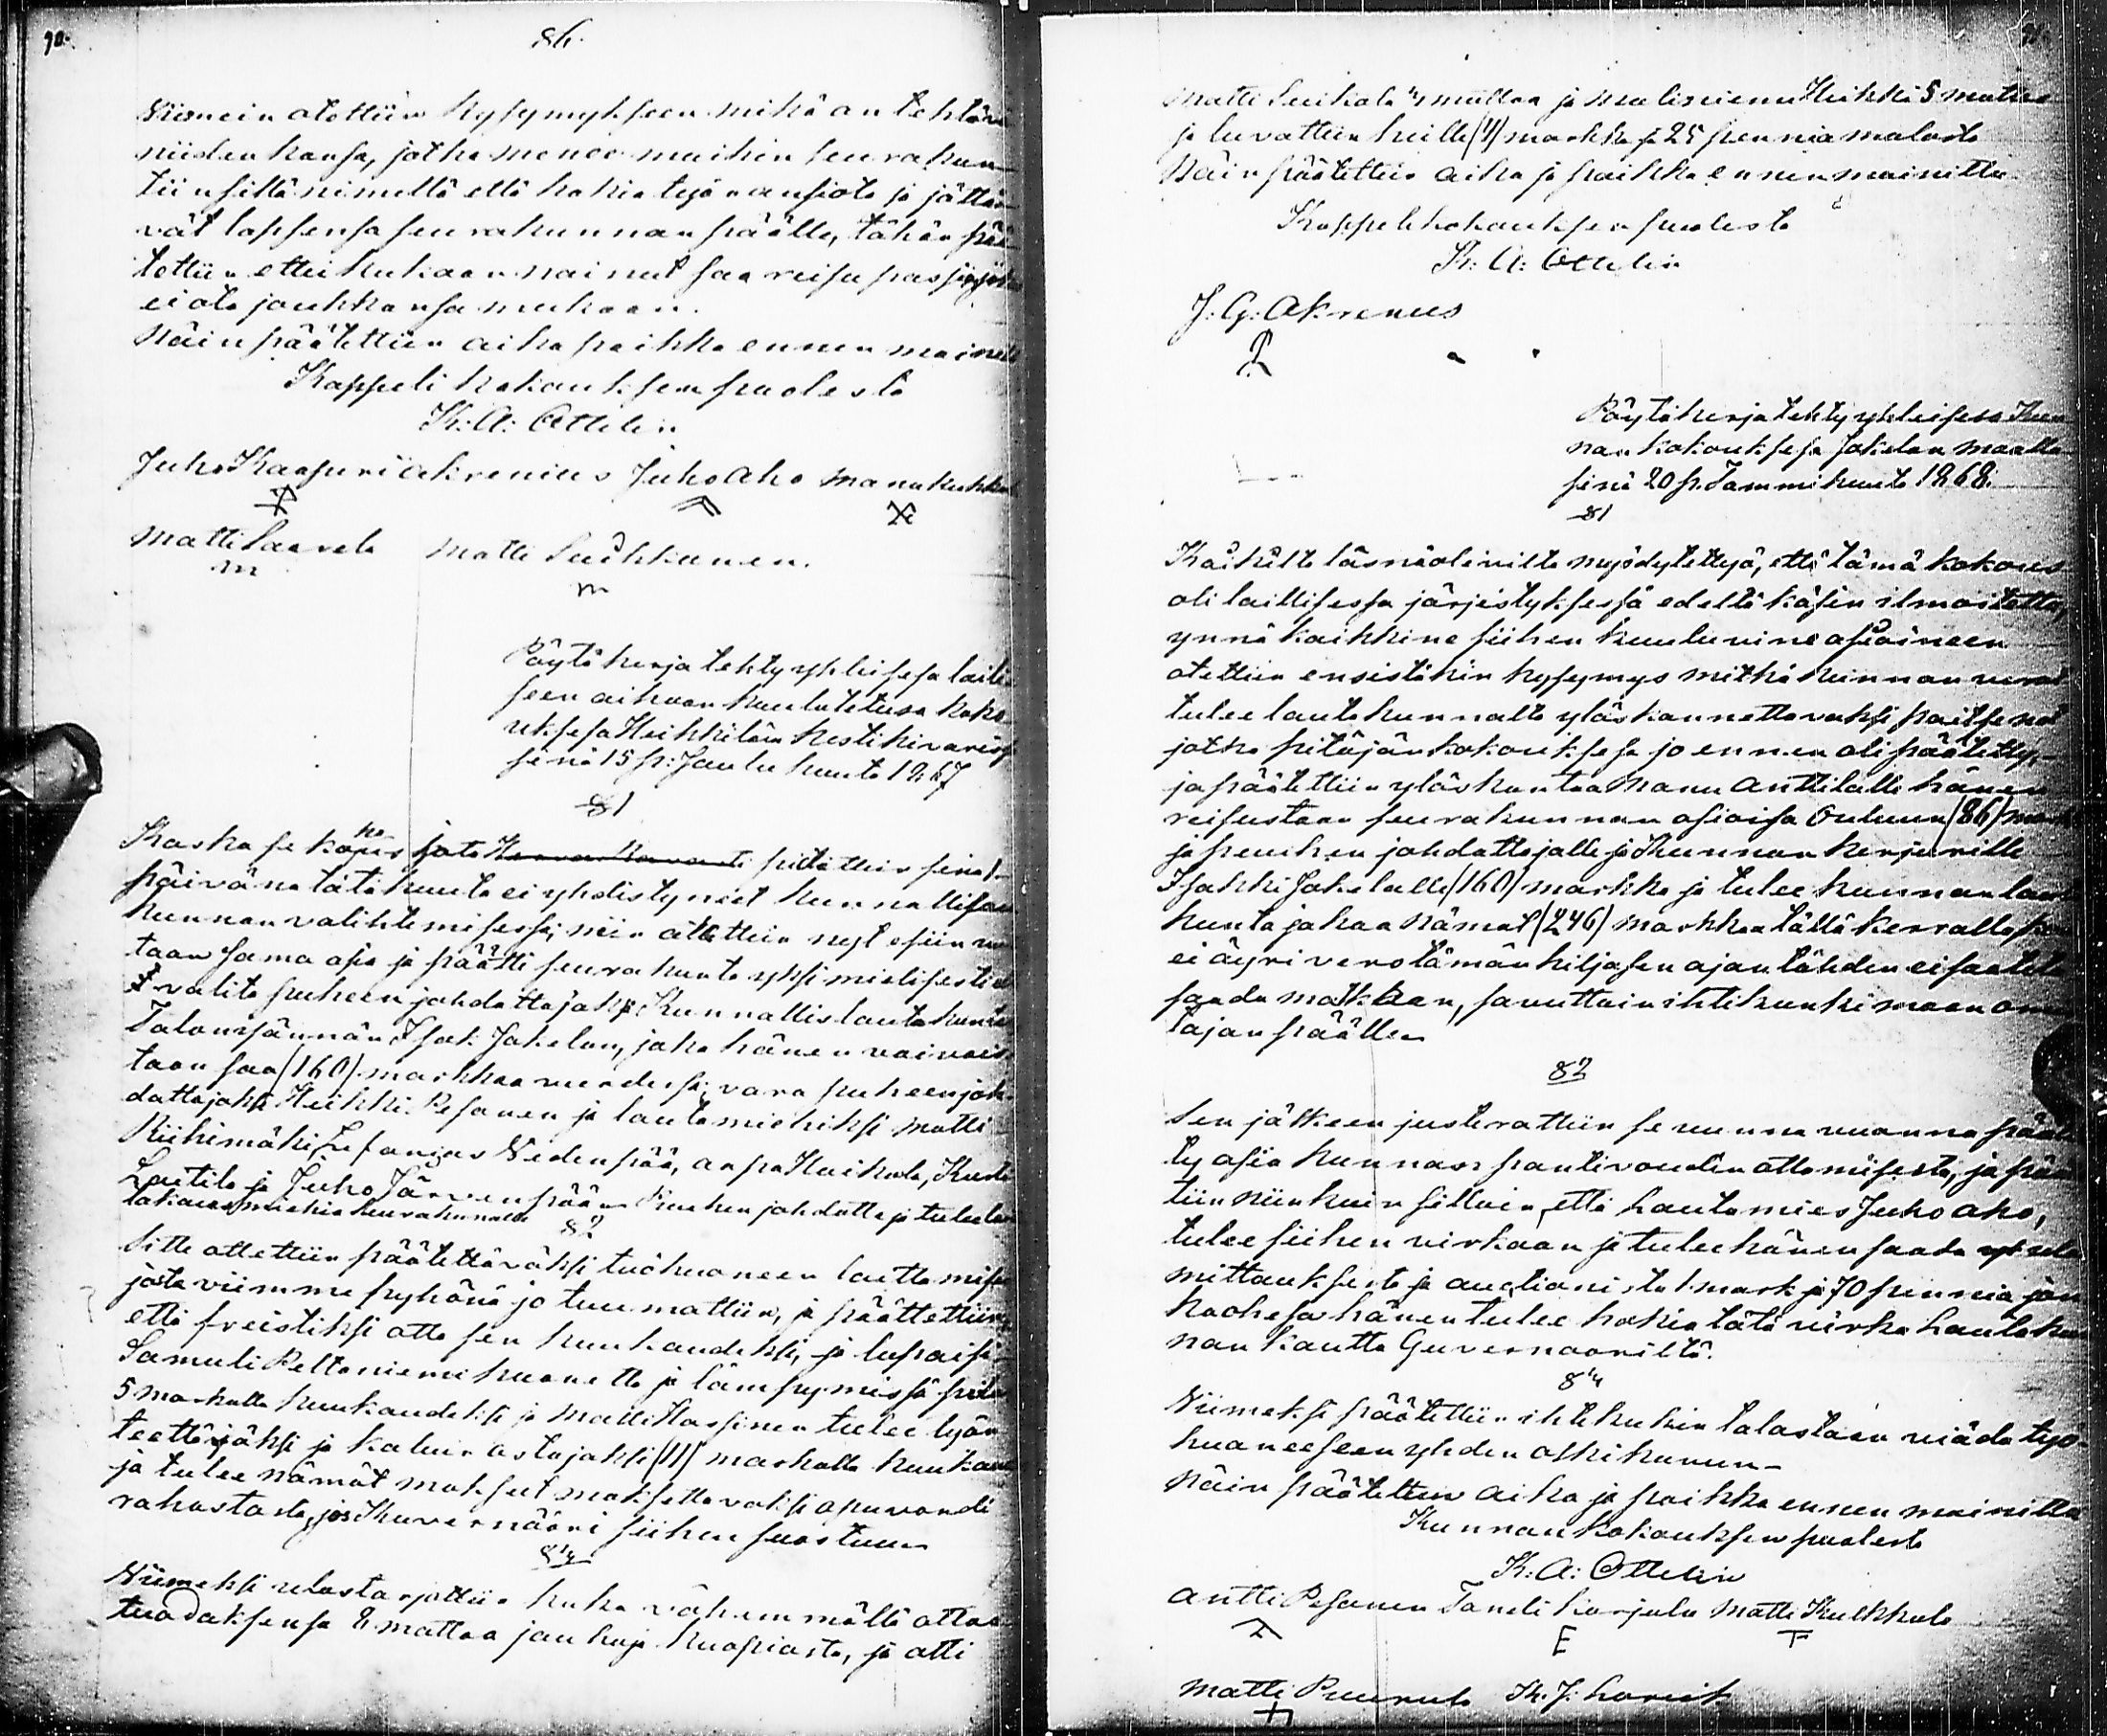 90.
§ 6.
Viimein otettiin kysymykseen mikä on tehtävä
niiden kansa, jotka menee muihin seurakun
tiin sillä nimellä että hakia työn ansiota ja jättä
vät lapsensa seurakunnan päälle, tähän pää
tettiin ettei kukaan nainut saa reisu passia jos
ei ota joukkansa mukaan.
Näin päätettiin aika paikka ennen mainit
Kappeli kokouksen puolesta
K: A: Ottelin
Juho Kaapuri Akrenius Juho Aho Manu Kuhka
Matti Saarela Matti Leskkunen.
m m
Pöytäkirja tehty yhleisesä laili
seen aikaan kuulutetusa koko
uksesa Heikkilän kestikivarisa
sinä 15 p: Joulu kuuta 1867
§ 1
Koska se kokous jota pidettiin sinä 1
päivänä tätä kuuta ei yhdistyneet kunnallislau
kunnan valihtemisessa, niin otettiin nyt esiin
taan sama asia ja päätti seurakunta yksi mielisesti
valita puheen johdattajaksi Kunnallislautakunta
Talonisännän Isak Jokelan, joka hänen vaivois
taan saa (160) markkaa vuodesa; vara puheenjoh
dattajaksi Heikki Pesonen ja lautamiehiksi Matti
Riihimäki, Zefanias Nedenpää, Aapa Haikola, Kusta
Lactila ja Juho Järvenpään Puhen johdattaja tulee
takausmiehiä seurakunnalle
§ 2
Sitte otettiin päätettäväksi työhuoneen laittamise
josta viimme pyhänä jo tuumattiin, ja päätettiin
että freistiksi otta sen kuukaudeksi, ja lupaisi
Samuli Peltoniemi huonetta ja lämpymissä pitä
5 markalla kuukaudeksi ja Matti Hassinen tulee työn
teettäjäksi ja kaluin ostajaksi (11) markalla kuukau
ja tulee nämät maksut maksettavaksi apuvoudi
rahastosta, jos Kuvernööri siihen suostuu
§ 4
Viimeksi ulostarjottiin kuka vähemmällä ottaa
tuodaksensa 8 mattoa jauhoja Kuopiosta, ja otti
91.
Matti Leikola 4 mattoa ja Malisniemi Heikki 5 mattoa
ja luvattiin heille (4) markkaa ja 25 penniä matosta
Näin päätettiin aika ja paikka ennen mainittu
Kappeli kokouksen puolesta
K: A: Ottelin
J: G: Akrenus
Pöytäkirja tehty yhleisesä Kun
nan kokouksesa Jokelan maalla
sinä 20 p. Tammikuuta 1868.
§ 1
Kaikilta läsnäolevilta myödytettyä, että tämä kokous
oli laillisessa järjestyksessä edeltä käsin ilmoitettu,
ynnä kaikkine siihen kuuluvine asioineen
otettiin ensistäkin kysymys mitkä kunnan verot
tulee lautakunnalta ylöskannettavaksi paitse net
jotka pitäjänkokouksesa jo ennen oli päätetty,
ja päätettiin ylöskantaa Manu Anttilalle hänen
reisustaan seurakunnan asioisa Ouluun (86) mark
ja peuhen johdattajalle ja Kunnan kirjurille
Isakki Jokelalle (160) markkaa ja tulee kunnan lau
kunta jakaa nämät (246) markkaa tällä kerralla
ei äyri verotämän hiljasen ajan tähden ei saateta
saada matkaan, savuttain ihtikunki maan om
tajan päälle
§ 2
Sen jälkeen justerattiin se vunna vuonna pääte
ty asia kunnan pantivoudin ottamisesta, ja pää
tiin niinkuin silloin, että Lautamies Juho Aho,
tulee siihen virkaan ja tulee hänen saada
mittauksesta ja auctionista 1 mark ja 70 penniä jon
kaohesa hänen tulee hakia tätä virka Lautakun
nan kautta Guvernööriltä.
§ 4
Viimeksi päätettiin ihtekukin talostaan viädä työ
huoneeseen yhden astikunnn
Näin päätettiin aika ja paikka ennen mainittu
Kunnan kokouksen puolesta
K: A: Ottelin
Antti Pesonen Taneli Karjula Matti Kulkkula
Matti Puurula